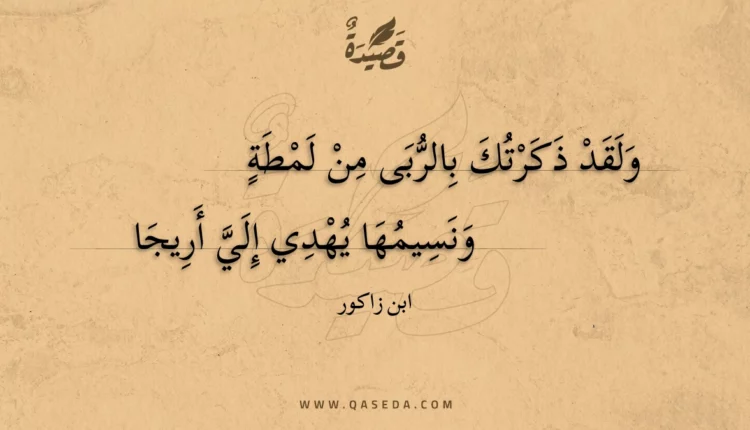 قَصِيدَةٌ
وَلَقَدْ ذَكَرْتُكَ بِالرُّبَى مِنْ لَمْطَةٍ
وَنَسِيمُهَا يُهْدِي إِلَيَّ أَرِيجَا
ابن زاكور
WWW.QASEDA.COM